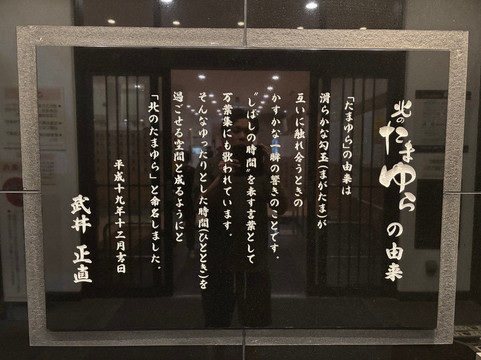 北のたまゆら の由来
「たまゆら」の由来は
滑らかな勾玉(まがたま)が
互いに触れ合うときの
かすかな一瞬の響きのことです。
〝しばしの時間〟を表す言葉として
万葉集にも歌われています。
そんなゆったりとした時間(ひととき)を
過ごせる空間と成るようにと
「北のたまゆら」と命名しました。
平成十九年十二月吉日
武井 正直